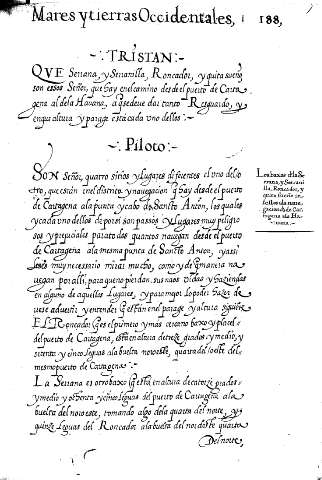 Mares y tierras Occidentales, 188,
TRISTAN
QVE Serrana, y Serranilla, Roncador, y quita sueño
son essos Señor, que hay en el camino desde el puerto de Carta
gena al dela Havana, a que se deve dar tanto Resguardo, y
en que altura y parage esta cada vno dellos.
Piloto
SON Señor, quatro sitios y lugares diferentes el vno del o
tro, que estan en el districto y navegacion q̃ hay desde el puerto
de Cartagena a la punta y cabo de Sancto Anton, los quales
y cada vno dellos de por si son passos y Lugares muy peligro
sos y perjudiciales para todos quantos navegan desde el puerto
de Cartagena a la mesma punta de Sancto Anton, y assi
es muy necessario mirar mucho, como y de q̃ manera na
vegan por alli, para que no pierdan, sus naos vidas y haziendas
en alguno de aquellos Lugares, y para mejor lo poder hazer de
veis advertir, y entender q̃ estan en el parage y altura siguiẽte
EL Roncador q̃ es el primero y mas cercano baxo y placel
del puerto de Cartagena, esta en altura de treze grados y medio, y
setenta y cinco leguas a la buelta norueste, quarta del oeste del
mesmo puerto de Cartagena
LA Serrana es otro baxo q̃ esta en altura de catorze grados y
medio y ochenta y cinco leguas del puerto de Cartagena a la
buelta del norueste, tomando algo de la quarta del norte, y
quinze leguas del Roncador a la buelta del nordeste quarta
Del norte,
Los baxos dela Se
rrana, y Serrani
lla, Roncador, y
quita sueño en